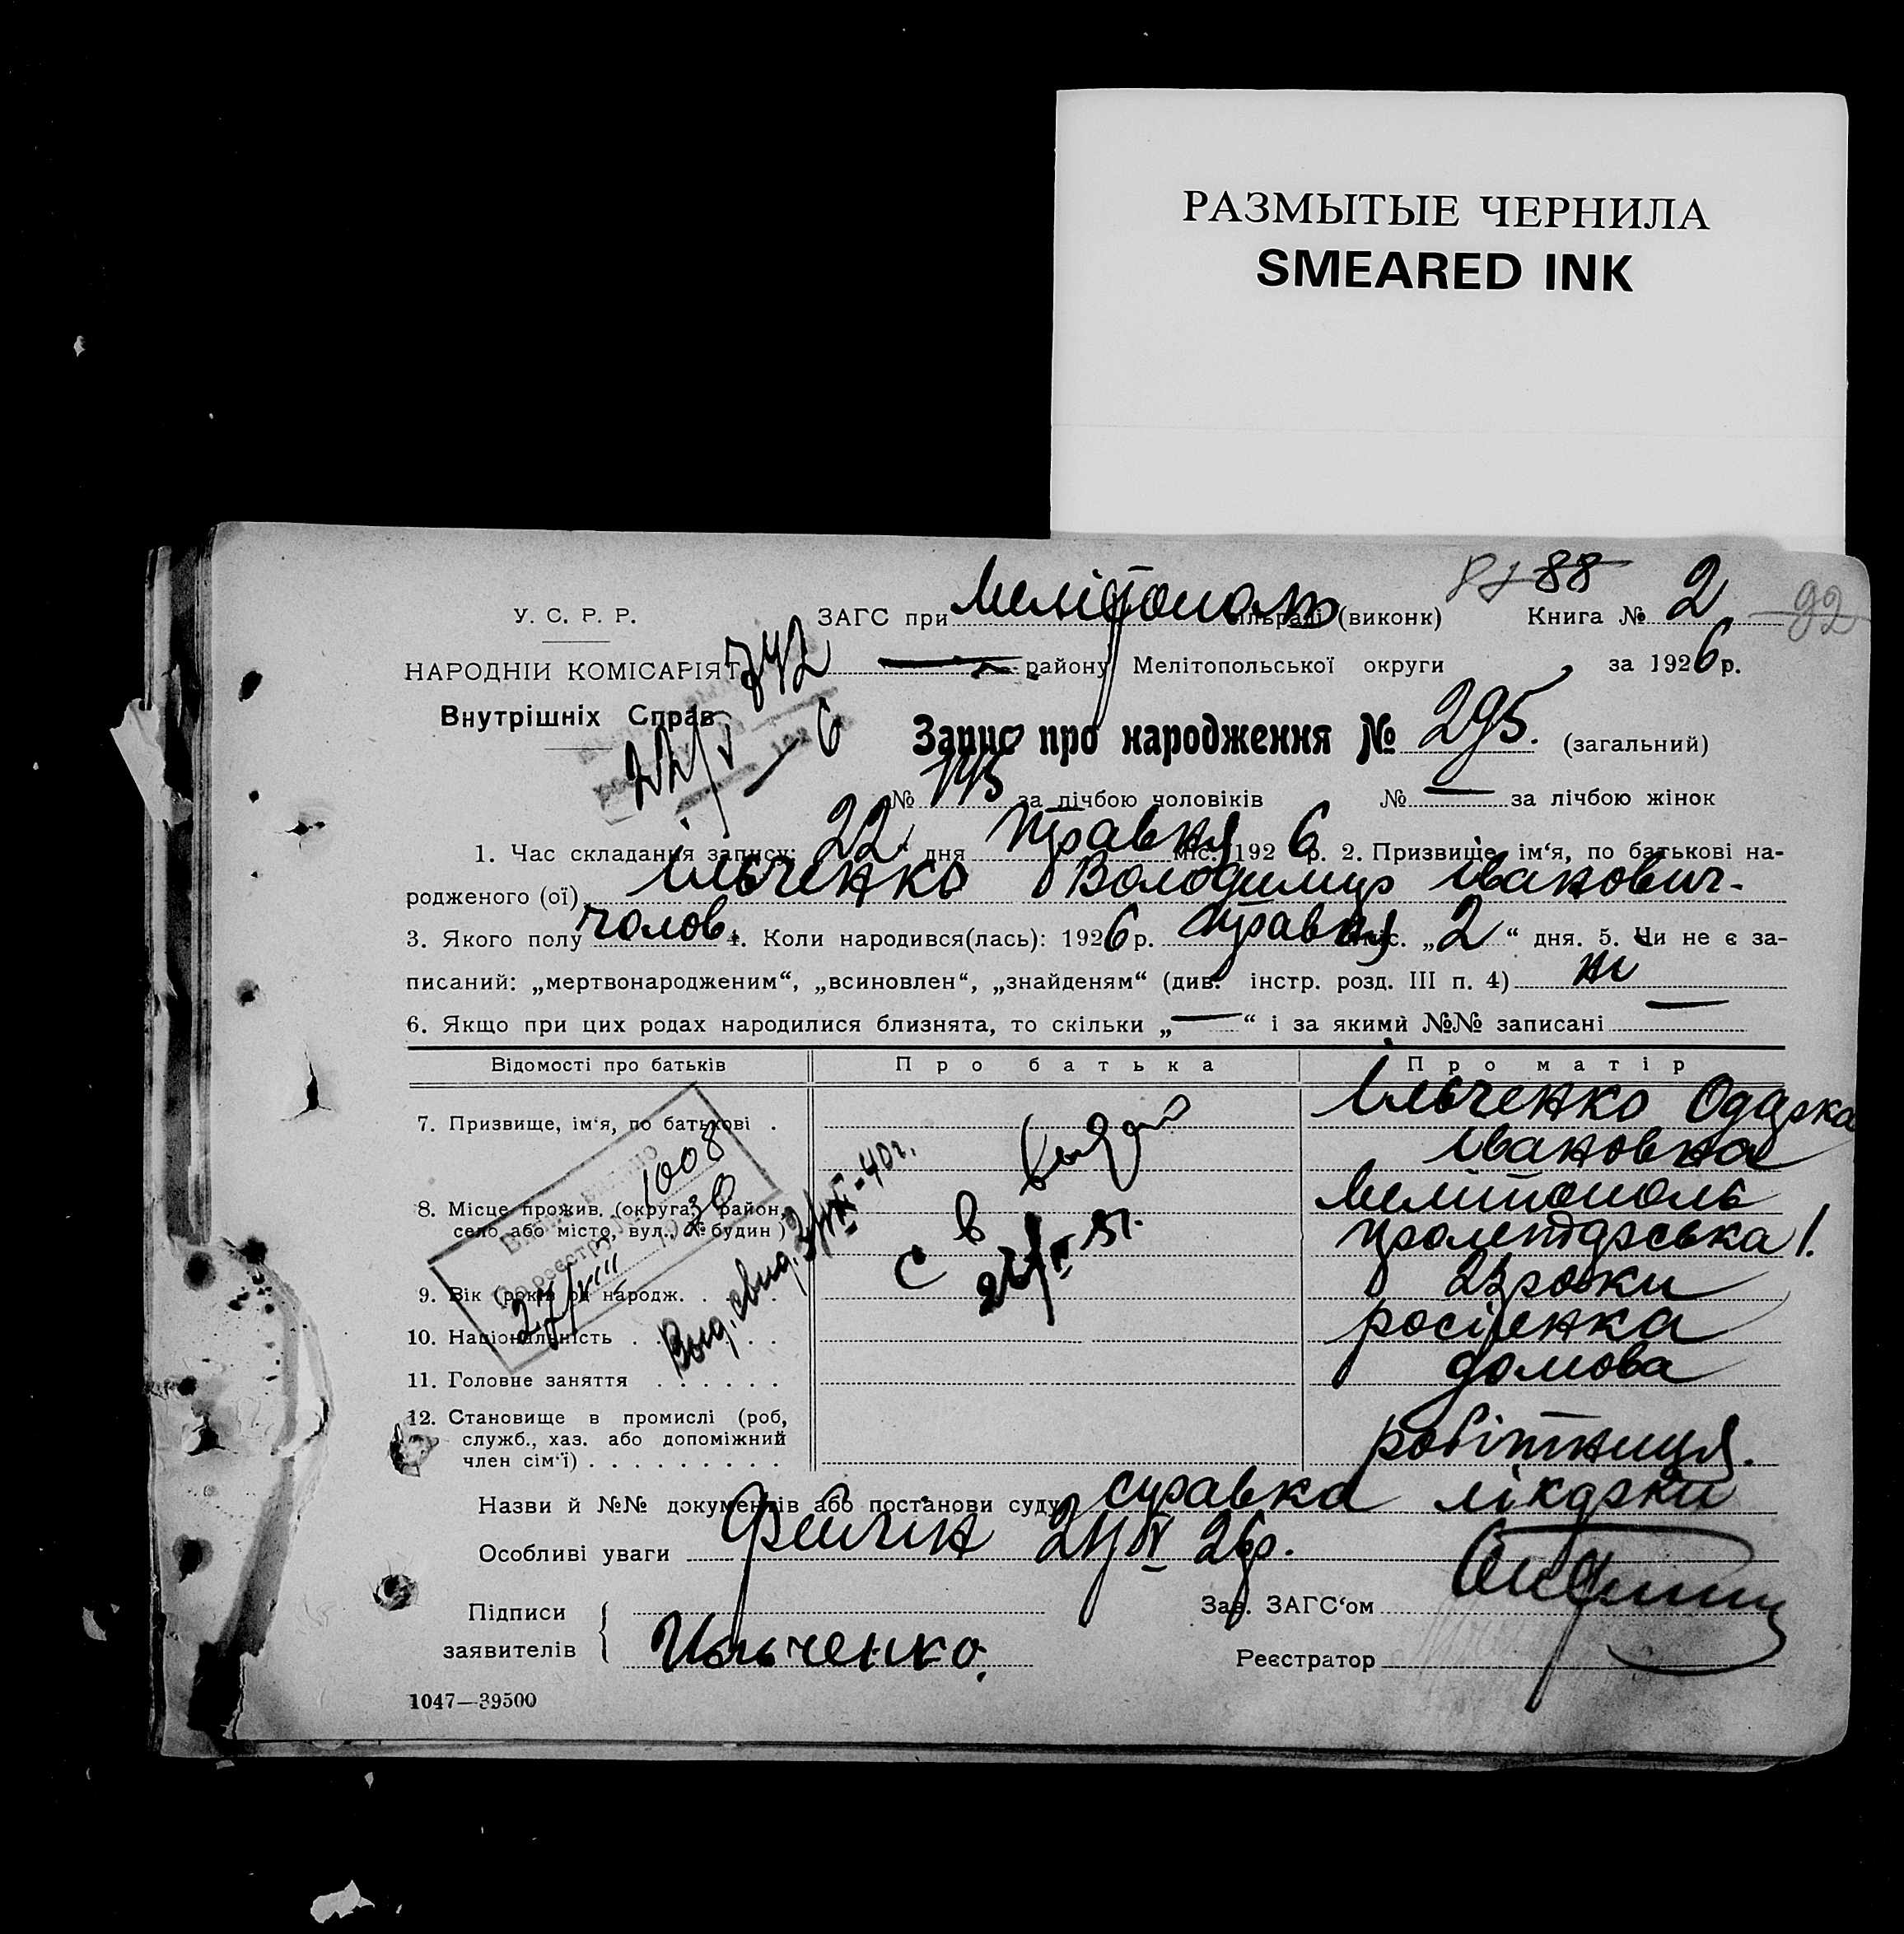 РАЗМЫТЫЕ ЧЕРНИЛА
SMEARED INK
88
92
У. С. Р. Р.
ЗАГС при Мелітополь сільраді (виконк) Книга № 2
НАРОДНІЙ КОМІСАРІЯТ
742
району Мелітопольської округи за 1926 р.
Внутрішніх Справ
22/V – 6
Запис про народження № 295. (загальний)
№ 145 за лічбою чоловіків № — за лічбою жінок
1. Час складання запису: 22 дня травня міс. 1926 р. 2. Призвище, ім‘я, по батькові на-
родженого (ої) Ільченко Володимир Іванович.
3. Якого полу чолов. 4. Коли народився(лась): 1926 р. травня міс. „2“ дня. 5. Чи не є за-
писаний: „мертвонародженим“, „всиновлен“, „знайденям“ (див. інстр. розд. III п. 4) ні
6. Якщо при цих родах народилися близнята, то скільки „—“ і за якими №№ записані —
Відомості про батьків
Про батька
Про матір
7. Призвище, ім‘я, по батькові .
Ільченко Одарка
Івановна
8. Місце прожив. (округа, район,
село або місто, вул., № будин )
Мелітополь
пролетарська 1.
9. Вік (років од народж. . . . .
23 роки
10. Національність . . . . .
росіянка
11. Головне заняття . . . . . .
домова
12. Становище в промислі (роб,
служб., хаз. або допоміжний
член сім‘ї) . . . . . . . . .
робітниця.
1008
30
27/VIII
Выд. свид. 3/IX-40г.
с в
Назви й №№ документів або постанови суду справка лікарки
Особливі уваги Фейгін 21/V 26р.
Підписи
заявителів
Ильченко.
Зав. ЗАГС‘ом
Реєстратор
1047—39500